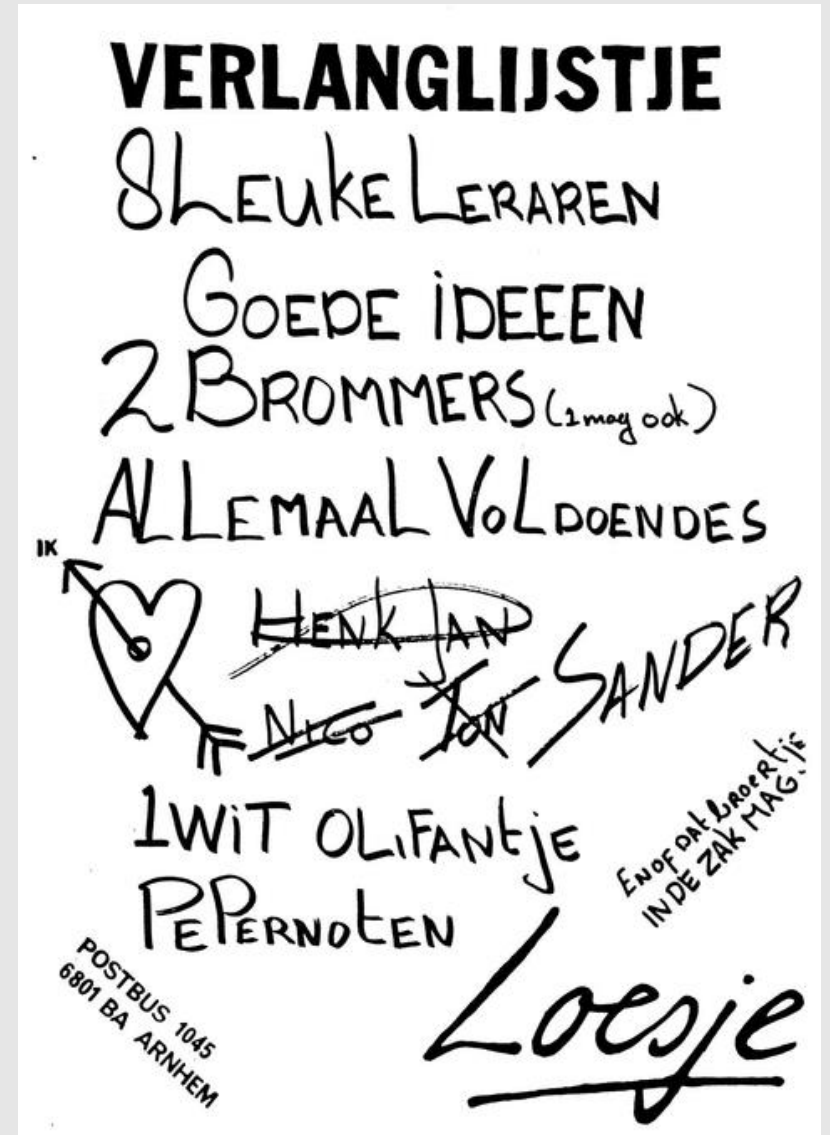 VERLANGLIJSTJE
8 LEUKE LERAREN
GOEDE IDEEEN
2 BROMMERS (1 mag ook)
ALLEMAAL VOLDOENDES
IK
HENK JAN
NICO TON SANDER
1 WIT OLIFANTJE
PEPERNOTEN
EN OF DAT BROERTJE
IN DE ZAK MAG.
POSTBUS 1045
6801 BA ARNHEM
Loesje